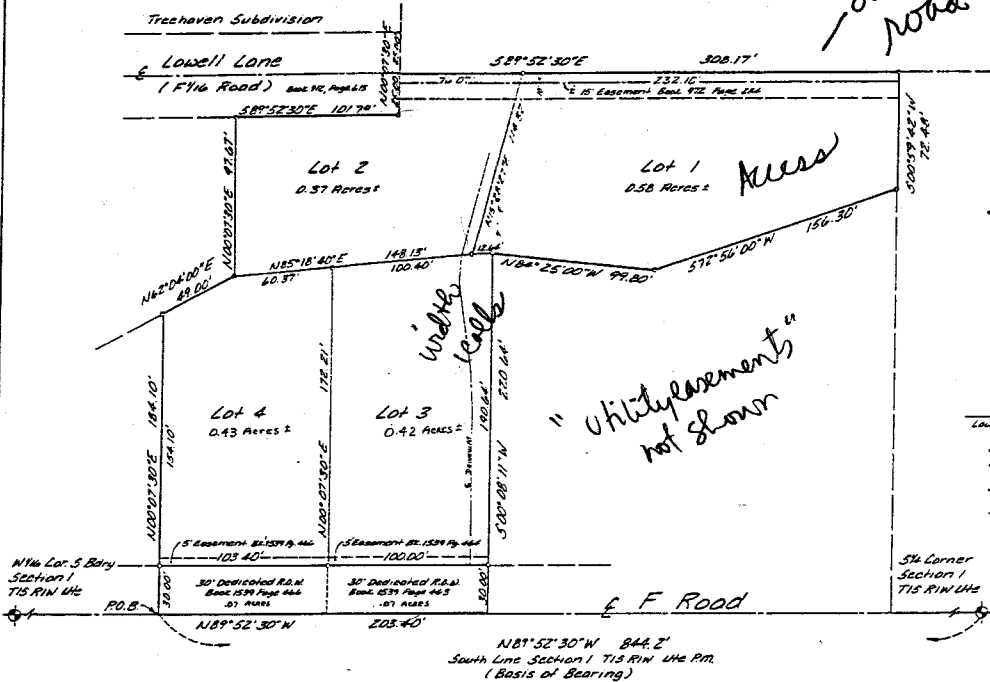 Treehaven Subdivision
road
℄ Lowell Lane
(F 1/16 Road)
Book 912, Page 615
S89°52'30"E 101.79'
N00°07'30"E
25.00'
S89°52'30"E
308.17'
76.0'
232.16'
15' Easement Book 972 Page
N00°07'30"E 97.67'
Lot 2
0.37 Acres±
Lot 1
0.58 Acres±
Access
72.48'
156.30'
S72°56'00"W
N62°04'00"E
49.00'
N85°18'40"E
148.13'
60.37'
100.40'
12.64'
N86°25'00"W 99.80'
"width
calls
"utility easements"
not shown
N00°07'30"E 184.10'
154.10'
Lot 4
0.43 Acres±
N00°07'30"E 172.21'
Lot 3
0.42 Acres±
190.64'
220.64'
S00°08'11"W
5' Easement Bk. 1539 Pg. 466
103.40'
5' Easement Bk. 1539 Pg. 466
100.00'
W 1/16 Cor. S Bdry
Section 1
T1S R1W Ute
P.O.B.
30.00'
30' Dedicated R.O.W.
Book 1539 Page 466
.07 Acres
30' Dedicated R.O.W.
Book 1539 Page 463
.07 Acres
30.00'
℄ F Road
S 1/4 Corner
Section 1
T1S R1W Ute
N89°52'30"W
203.40'
N89°52'30"W 844.2'
South Line Section 1 T1S R1W Ute P.M.
(Basis of Bearing)